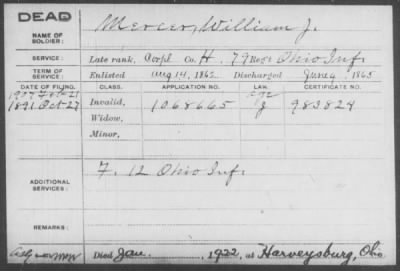 DEAD
NAME OF SOLDIER: Mercer, William J.
SERVICE: Late rank, Corpl Co. H. 79 Reg't Ohio Inf.
TERM OF SERVICE: Enlisted Aug 14, 1862 Discharged June 9, 1865
DATE OF FILING. CLASS. APPLICATION NO. LAW. CERTIFICATE NO.
1907 Feb-21
1891 Oct-27 Invalid, 1068665 983824
Widow,
Minor,
ADDITIONAL SERVICES: F. 12 Ohio Inf.
REMARKS:
Died Jan. , 1922, at Harveysburg, Ohio